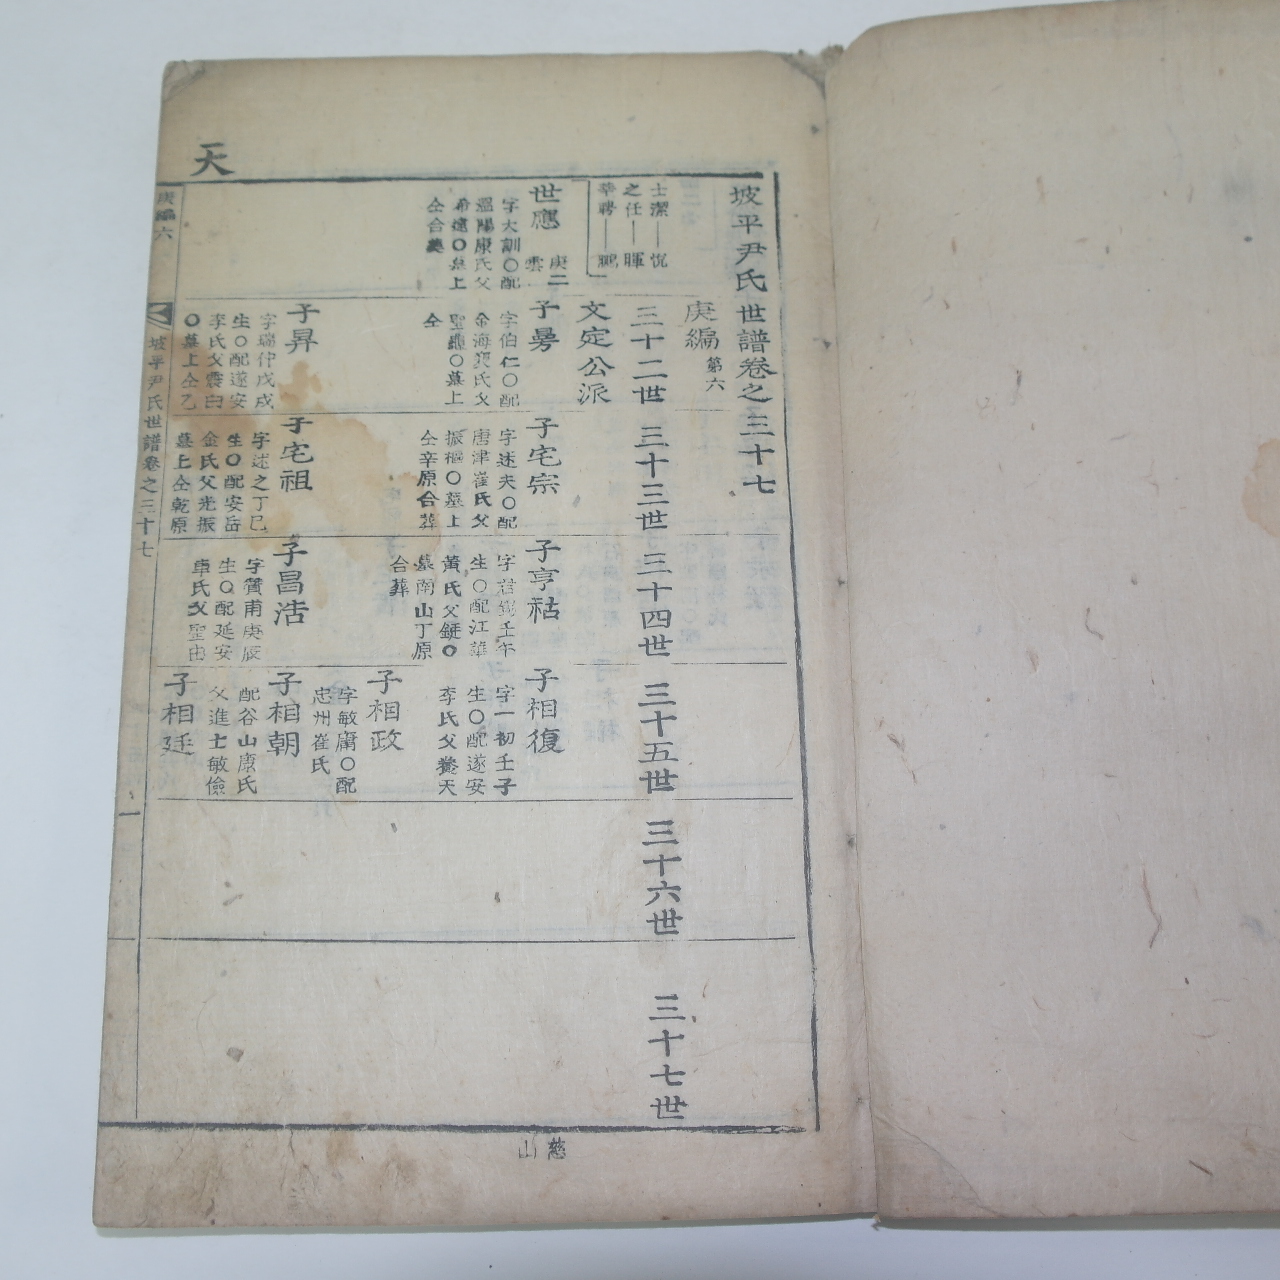 天
坡平尹氏世譜卷之三十七
庚編第六
三十二世
三十三世
三十四世
三十五世
三十六世
三十七世
士潔——恱
之任——暉
莘聘——鵬
文定公派
世應
庚二
雲
字大訓○配
溫陽康氏父
希遠○墓上
仝合葬
子昜
字伯仁○配
金海裵氏父
聖龜○墓上
仝
子昇
字瑞仲戊戌
生○配遂安
李氏父震白
○墓上仝乙
子宅宗
字述夫○配
唐津崔氏父
振樞○墓上
仝辛原合葬
子宅祖
字述之丁巳
生○配安岳
金氏父光振
墓上仝乾原
子亨祜
壬午
生○配江華
黃氏父鋌○
墓南山丁原
合葬
子昌活
字贊甫庚辰
生○配延安
車氏父聖由
子相復
字一初壬子
生○配遂安
李氏父養天
子相政
字敏庸○配
忠州崔氏
子相朝
配谷山康氏
父進士敏儉
子相廷
庚編六
坡平尹氏世譜卷之三十七
一
慈山